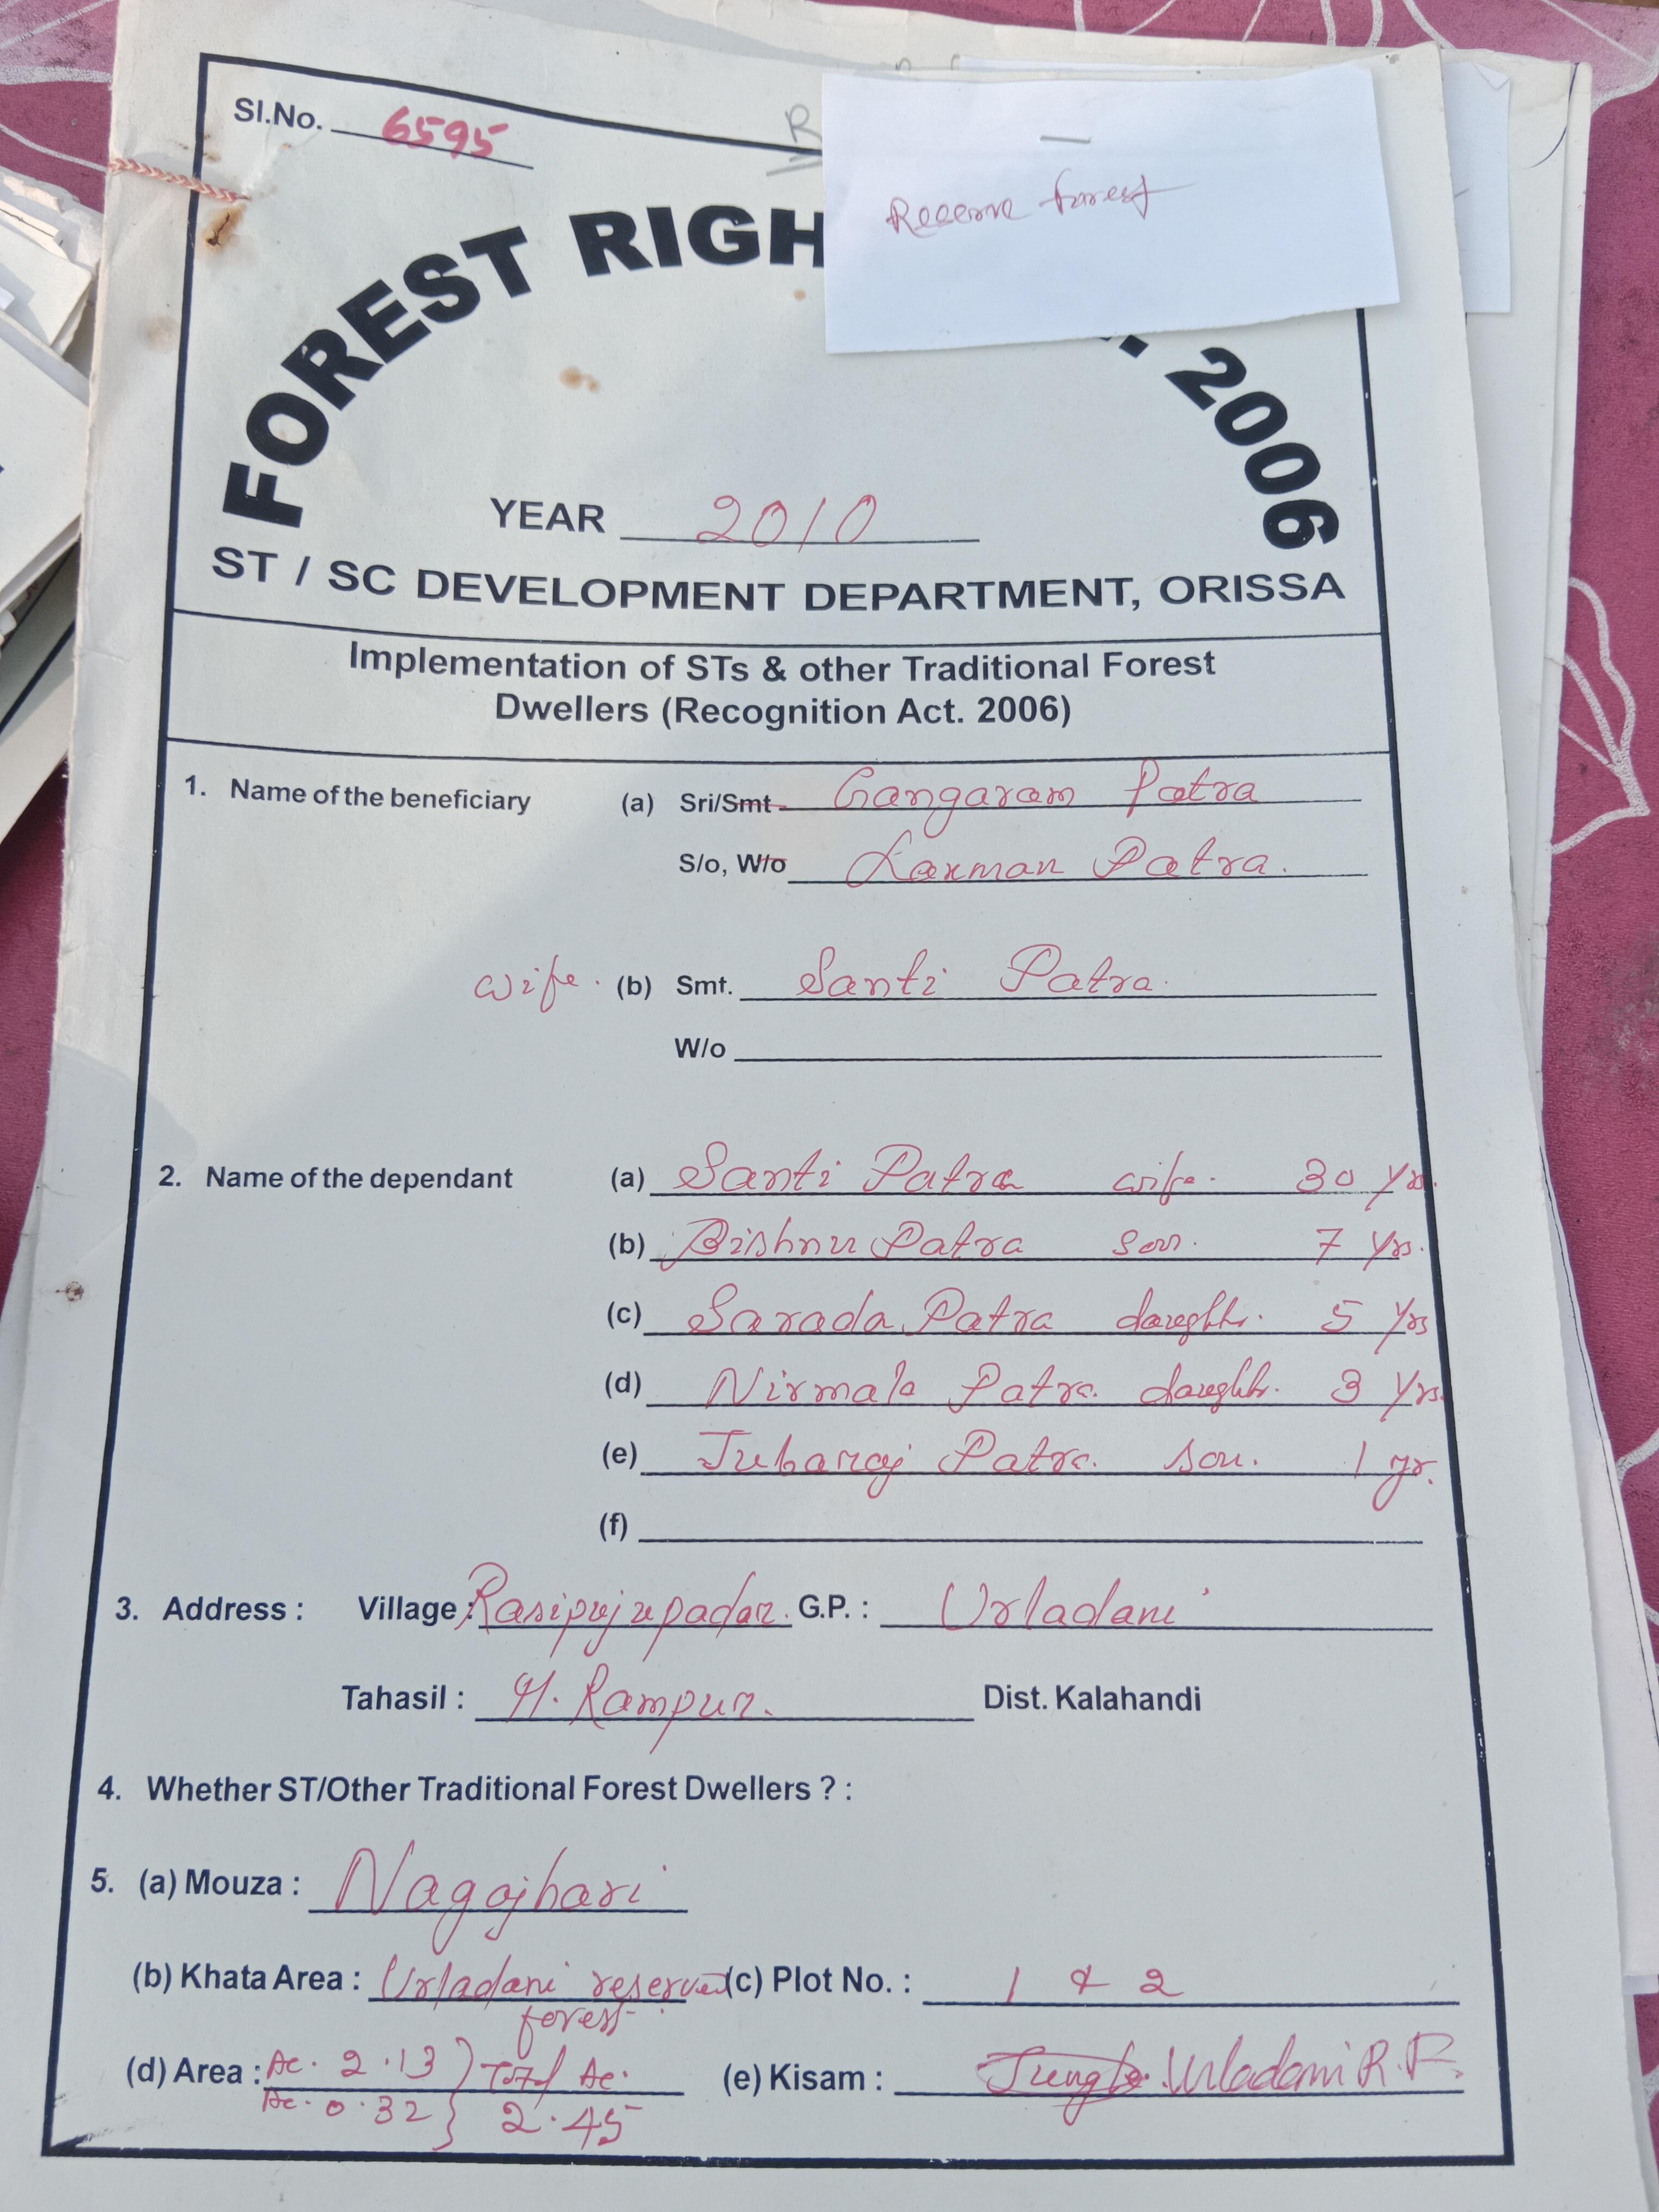 Sl.No. 6595
R
Reserve forest
FOREST RIGH
2006
YEAR 2010
ST / SC DEVELOPMENT DEPARTMENT, ORISSA
Implementation of STs & other Traditional Forest
Dwellers (Recognition Act. 2006)
1. Name of the beneficiary (a) Sri/Smt Gangaram Patra
S/o, W/o Laxman Patra.
wife. (b) Smt. Santi Patra.
W/o
2. Name of the dependant (a) Santi Patra wife. 30 Yrs.
(b) Bishnu Patra son. 7 Yrs.
(c) Sarada Patra daughtr. 5 Yrs
(d) Nirmala Patra. daughtr. 3 Yrs.
(e) Jubaraj Patra. son. 1 yr.
(f)
3. Address : Village : Rasipujupadar. G.P. : Urladani
Tahasil : M. Rampur. Dist. Kalahandi
4. Whether ST/Other Traditional Forest Dwellers ? :
5. (a) Mouza : Nagajhari
(b) Khata Area : Urladani reserved (c) Plot No. : 1 & 2
forest
(d) Area : Ac. 2.13 } Total Ac. (e) Kisam : Jungle. Urladani R.F.
Ac. 0.32 } 2.45